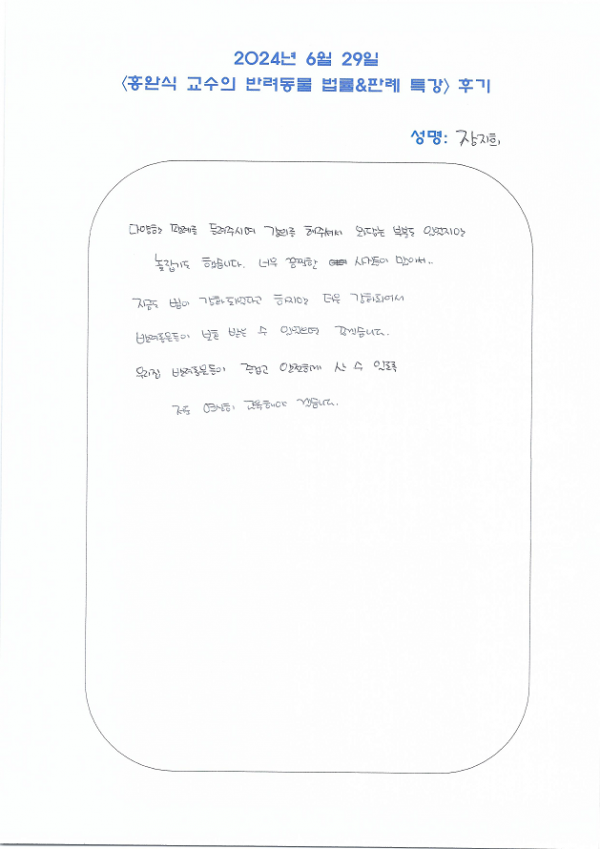 2024년 6월 29일
<홍완식 교수의 반려동물 법률&판례 특강> 후기
성명: 장지희
다양한 판례를 들려주시며 강의를 해주셔서 와닿는 부분도 있었지만
놀랍기도 했습니다. 너무 끔찍한 사건들이 많아서..
지금도 법이 강화되었다고 하지만 더욱 강화되어서
반려동물들이 보호 받을 수 있었으면 좋겠습니다.
우리집 반려동물들이 즐겁고 안전하게 살 수 있도록
저도 열심히 교육해야 겠습니다.